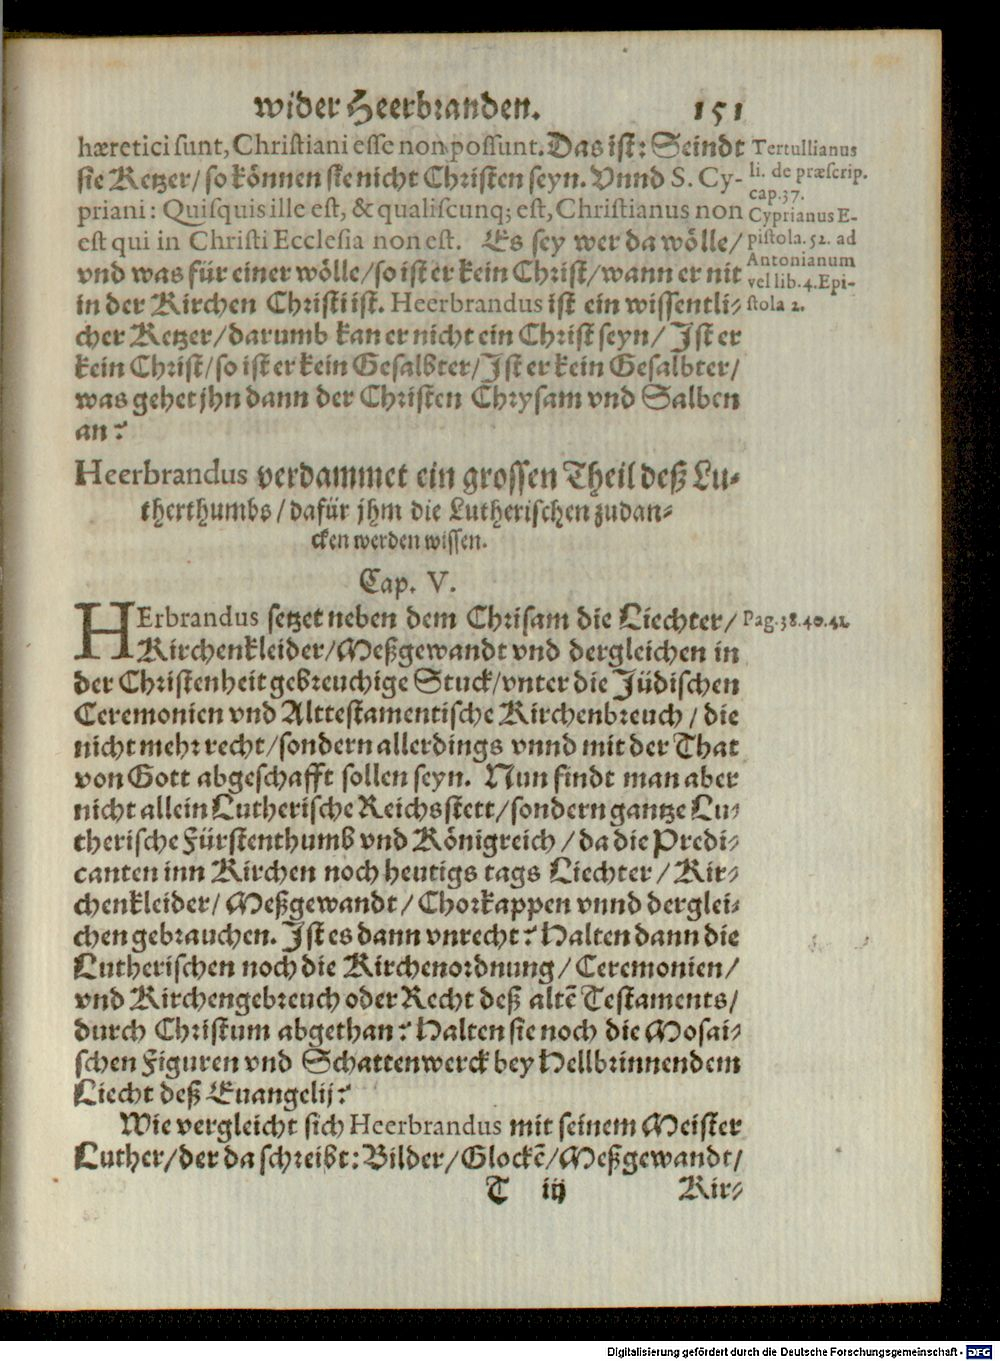 wider Heerbranden. 151
hæretici sunt, Christiani esse non possunt. Das ist: Seindt
sie Ketzer/ so können sie nicht Christen seyn. Vnnd S. Cy-
priani: Quisquis ille est, & qualiscunq; est, Christianus non
est qui in Christi Ecclesia non est. Es sey wer da wölle/
vnd was für einer wölle/ so ist er kein Christ/ wann er nit
in der Kirchen Christi ist. Heerbrandus ist ein wissentli-
cher Ketzer/ darumb kan er nicht ein Christ seyn/ Ist er
kein Christ/ so ist er kein Gesalbter/ Ist er kein Gesalbter/
was gehet jhn dann der Christen Chrysam vnd Salben
an?
Tertullianus
li. de præscrip.
cap. 37.
Cyprianus E-
pistola. 52. ad
Antonianum
vel lib. 4. Epi-
stola 2.
Heerbrandus verdammet ein grossen Theil deß Lu-
therthumbs/ dafür jhm die Lutherischen zudan-
cken werden wissen.
Cap. V.
HErbrandus setzet neben dem Chrisam die Liechter/
Kirchenkleider/ Meßgewandt vnd dergleichen in
der Christenheit gebreuchige Stuck/ vnter die Jüdischen
Ceremonien vnd Alttestamentische Kirchenbreuch/ die
nicht mehr recht/ sondern allerdings vnnd mit der That
von Gott abgeschafft sollen seyn. Nun findt man aber
nicht allein Lutherische Reichsstett/ sondern gantze Lu-
therische Fürstenthumb vnd Königreich/ da die Predi-
canten inn Kirchen noch heutigs tags Liechter/ Kir-
chenkleider/ Meßgewandt/ Chorkappen vnnd derglei-
chen gebrauchen. Ist es dann vnrecht? Halten dann die
Lutherischen noch die Kirchenordnung/ Ceremonien/
vnd Kirchengebreuch oder Recht deß altẽ Testaments/
durch Christum abgethan? Halten sie noch die Mosai-
schen Figuren vnd Schattenwerck bey Hellbrinnendem
Liecht deß Euangelij?
Pag. 38. 40. 42.
Wie vergleicht sich Heerbrandus mit seinem Meister
Luther/ der da schreibt: Bilder/ Glockẽ/ Meßgewandt/
T iij Kir-
Digitalisierung gefördert durch die Deutsche Forschungsgemeinschaft - DFG